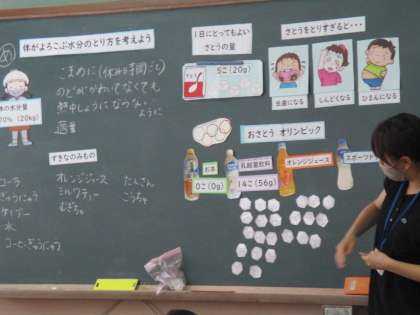 め
体がよろこぶ水分のとり方を考えよう
こまめに(休み時間ごと)
のどがかわいてなくても
熱中しょうにならない
ように
適量
体の水分量
70% (20kg)
すきなのみもの
コーラ
ぎゅうにゅう
サイダー
水
コーヒーぎゅうにゅう
オレンジジュース
ミルクティー
むぎちゃ
たんさん
こうちゃ
1日にとってもよい
さとうの量
5こ(20g)
さとうをとりすぎると・・・
虫歯になる
しんどくなる
ひまんになる
おさとう オリンピック
お茶
乳酸菌飲料
オレンジジュース
スポーツド
0こ(0g)
14こ(56g)